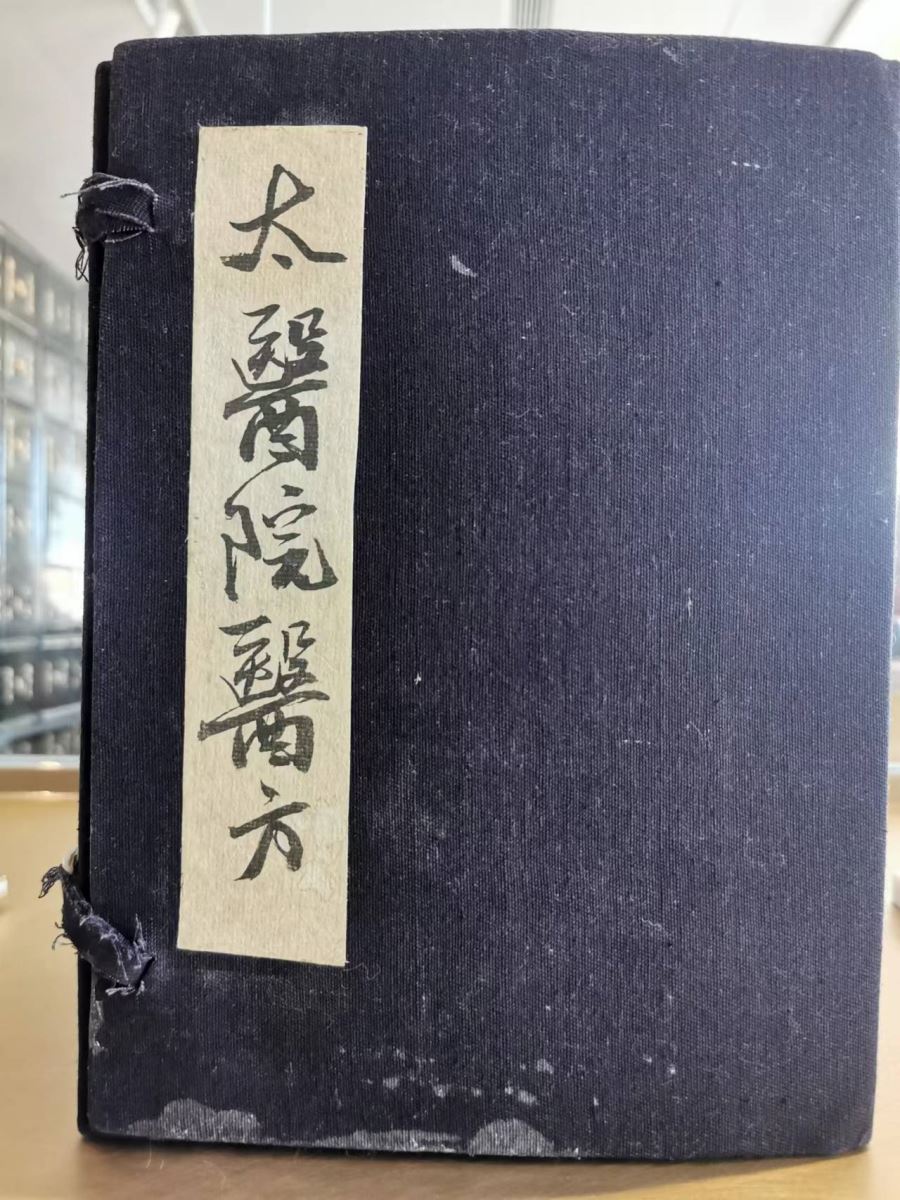 太醫院醫方